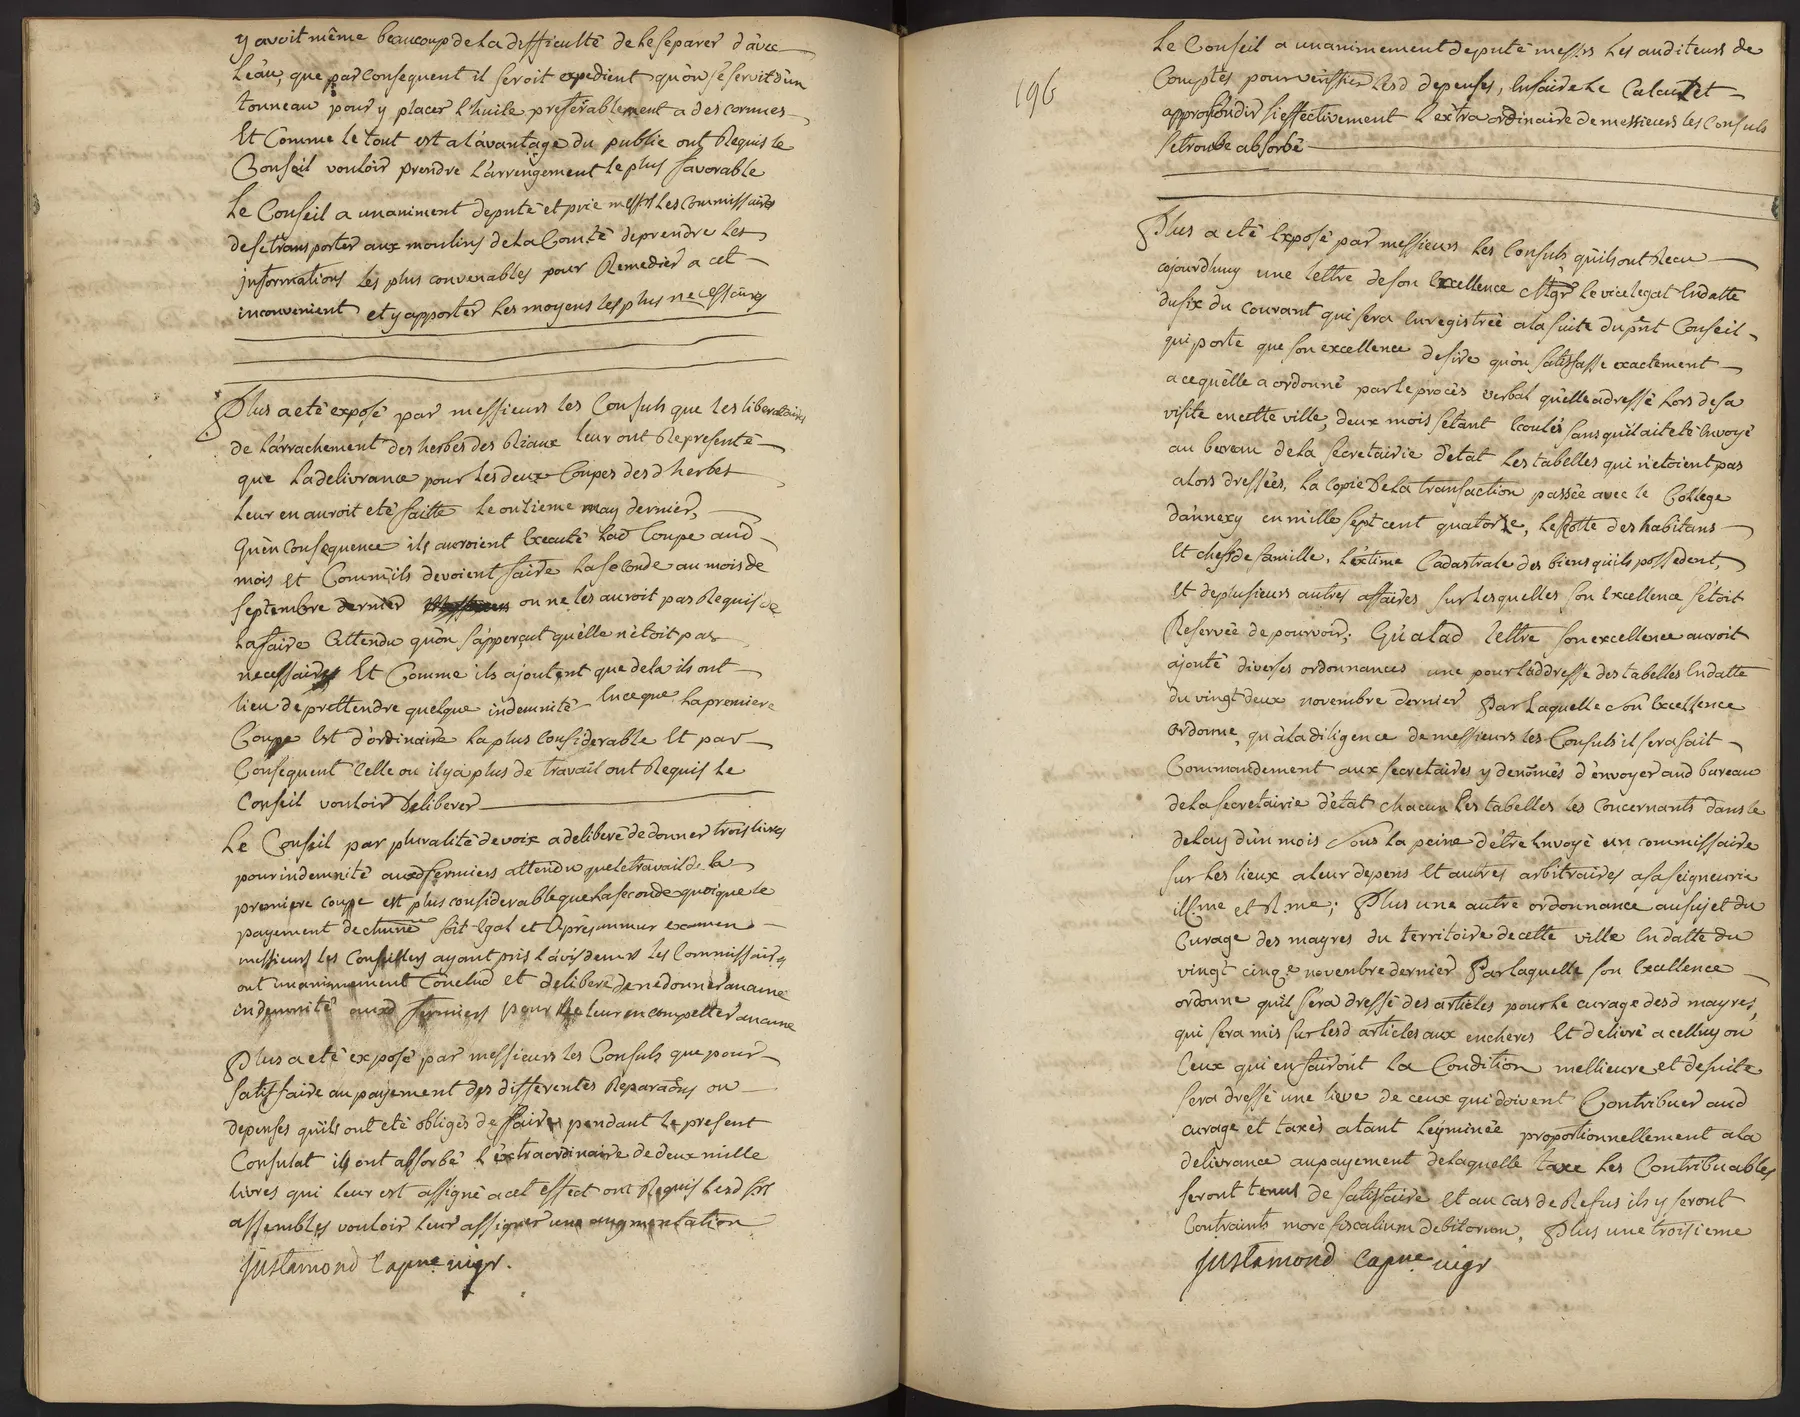 y avoit même beaucoup de la difficulté de le separer d'avec
l'eau, que par consequent il seroit expedient qu'on se servit d'un
tonneau pour y placer l'huile preferablement a des cornues
Et Comme le tout est a l'avantage du public ont Requis le
Conseil vouloir prendre l'arrengement le plus favorable
Le Conseil a unaniment deputé et prie messrs les commissaires
de se transporter aux moulins de la Comté de prendre les
informations les plus convenables pour Remedier a cet
inconvenient et y apporter les moyens les plus necessaires
Plus a eté exposé par messieurs les Consuls que les liberataires
de l'arrachement des herbes des Riaux leur ont Representé
que la delivrance pour les deux Coupes desd herbes
leur en auroit eté faitte le onzieme may dernier,
qu'en consequence ils auroient Executé lad Coupe aud
mois et Comm'ils devoient faire la seconde au mois de
septembre dernier on ne les auroit pas Requis de
la faire attendu qu'on s'apperçut qu'elle n'etoit pas
necessaire Et Comme ils ajoutent que de la ils ont
lieu de prettendre quelque indemnité en ce que la premiere
Coupe Est d'ordinaire la plus considerable Et par
Consequent celle ou il y a plus de travail ont Requis le
Conseil vouloir deliberer
Le Conseil par pluralité de voix a deliberé de donner trois livres
pour indemnité auxd fermiers attendu que le travail de la
premiere coupe est plus considerable que la seconde quoique le
payement de chune soit egal et Après un mur examen
messieurs les Conseillers ayant pris l'avis de mrs les Commissaires
ont unanimement Conclud et deliberé de ne donner aucune
indemnité auxd fermiers pour ne leur en competter aucune
Plus a eté exposé par messieurs les Consuls que pour
satisfaire au payement des differentes Reparaõns ou
depenses qu'ils ont eté obligés de faire pendant le present
Consulat ils ont absorbé l'extraordinaire de deux mille
livres qui leur est assigné a cet effect ont Requis lesd srs
assemblés vouloir leur assigner une augmentation
Justamond Capne viger.
196
Le Conseil a unanimement deputé messrs les auditeurs de
Comptes pour verifier lesd depenses, en faire le Calcul et
approfondir si effectivement l'extraordinaire de messieurs les Consuls
se trouve absorbé
Plus a eté Exposé par messieurs les Consuls qu'ils ont Receu
aujourdhuy une lettre de son Excellence Mgr le vicelegat En datte
du six du courant qui sera enregistrée a la suite du pnt Conseil
qui porte que son excellence desire qu'on satisfasse exactement
a ce qu'elle a ordonné par le procès verbal qu'elle adressé lors de sa
visite en cette ville, deux mois s'etant ecoulés sans qu'il ait eté envoyé
au bureau de la secretairie d'etat les tabelles qui n'etoient pas
alors dressées, la copie de la transaction passée avec le College
d'annexy en mille sept cent quatorze, le Rolle des habitans
Et chefs de famille, l'extime Cadastrale des biens qu'ils possedent,
Et de plusieurs autres affaires sur lesquelles son Excellence s'etoit
Reservée de pourvoir; Qu'a lad lettre son excellence auroit
ajouté diverses ordonnances une pour l'addresse des tabelles En datte
du vingt deux novembre dernier Par laquelle son Excellence
ordonne, qu'a la diligence de messieurs les Consuls il sera fait
Commandement aux secretaires y denõmés d'envoyer aud bureau
de la secretairie d'etat chacun les tabelles les concernants dans le
delay d'un mois sous la peine d'etre envoyé un commissaire
sur les lieux a leur depens Et autres arbitraires a sa seigneurie
illme et Rme; Plus une autre ordonnance au sujet du
Curage des mayres du territoire de cette ville En datte du
vingt cinqe novembre dernier Par laquelle son Excellence
ordonne qu'il sera dressé des articles pour le curage desd mayres,
qui sera mis sur lesd articles aux encheres Et delivré a celluy ou
Ceux qui en fairont la Condition mellieure et de suite
sera dressé une lieve de ceux qui doivent Contribuer aud
curage et taxés a tant l'eyminée proportionnellement a la
delivrance au payement de laquelle taxe les Contribuables
seront tenus de satisfaire Et au cas de Refus ils y seront
Contraints more fiscalium debitorum, Plus une troisieme
Justamond Capne vigr